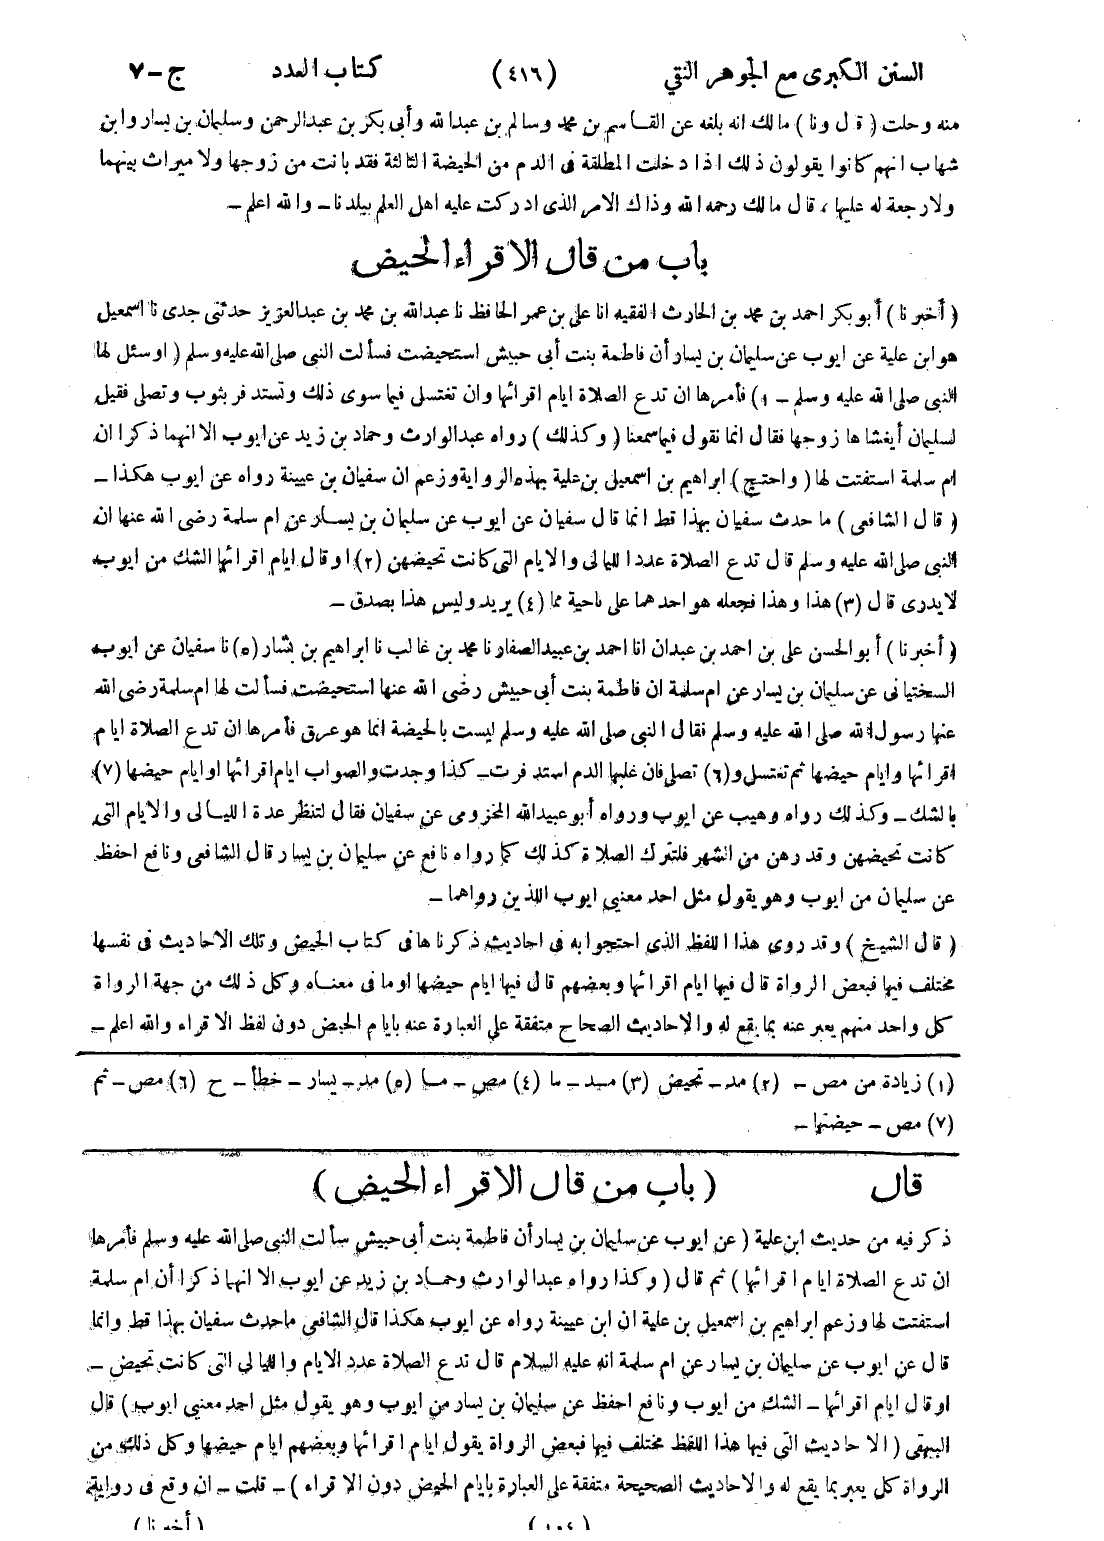 السنن الكبرى مع الجوهر النقي (٤١٦) كتاب العدد ج-٧
منه وحلت ( قال ونا ) مالك انه بلغه عن القاسم بن محمد وسالم بن عبد الله وأبى بكر بن عبد الرحمن وسليمان بن يسار وابن
شهاب انهم كانوا يقولون ذلك اذا دخلت المطلقة فى الدم من الحيضة الثالثة فقد بانت من زوجها ولا ميراث بينهما
ولا رجعة له عليها ، قال مالك رحمه الله وذاك الامر الذى ادركت عليه اهل العلم ببلدنا - والله اعلم -
باب من قال الاقراء الحيض
( أخبرنا ) أبو بكر احمد بن محمد بن الحارث الفقيه انا على بن عمر الحافظ نا عبد الله بن محمد بن عبد العزيز حدثنى جدى نا اسمعيل
هو ابن علية عن ايوب عن سليمان بن يسار أن فاطمة بنت أبى حبيش استحيضت فسألت النبى صلى الله عليه وسلم ( او سئل لها
النبى صلى الله عليه وسلم - ١) فأمرها ان تدع الصلاة ايام اقرائها وان تغتسلى فيما سوى ذلك وتستدفر بثوب وتصلى فقيل
لسليمان أيغشاها زوجها فقال انما نقول فيما سمعنا ( وكذلك ) رواه عبد الوارث وحماد بن زيد عن ايوب الا انهما ذكرا ان
ام سلمة استفتت لها ( واحتج ) ابراهيم بن اسمعيل بن علية بهذه الرواية وزعم ان سفيان بن عيينة رواه عن ايوب هكذا -
( قال الشافعى ) ما حدث سفيان بهذا قط انما قال سفيان عن ايوب عن سليمان بن يسار عن ام سلمة رضى الله عنها ان
النبى صلى الله عليه وسلم قال تدع الصلاة عدد الليالى والايام التى كانت تحيضهن (٢) او قال ايام اقرائها الشك من ايوب
لا يدرى قال (٣) هذا وهذا فجعله هو احدهما على ناحية مما (٤) يريد وليس هذا بصدق -
( أخبرنا ) أبو الحسن على بن احمد بن عبدان انا احمد بن عبيد الصفار نا محمد بن غالب نا ابراهيم بن بشار (٥) نا سفيان عن ايوب
السختيانى عن سليمان بن يسار عن ام سلمة ان فاطمة بنت أبى حبيش رضى الله عنها استحيضت فسألت لها ام سلمة رضى الله
عنها رسول الله صلى الله عليه وسلم فقال النبى صلى الله عليه وسلم ليست بالحيضة انما هو عرق فأمرها ان تدع الصلاة ايام
اقرائها وايام حيضها ثم تغتسل و(٦) تصلى فان غلبها الدم استدفرت - كذا وجدت والصواب ايام اقرائها او ايام حيضها (٧)
بالشك - وكذلك رواه وهيب عن ايوب ورواه أبو عبيد الله المخزومى عن سفيان فقال لتنظر عدة الليالى والايام التى
كانت تحيضهن وقدرهن من الشهر فلتترك الصلاة كذلك كما رواه نافع عن سليمان بن يسار قال الشافعى ونافع احفظ
عن سليمان من ايوب وهو يقول مثل احد معنيى ايوب اللذين رواهما -
( قال الشيخ ) وقد روى هذا اللفظ الذى احتجوا به فى احاديث ذكرناها فى كتاب الحيض وتلك الاحاديث فى نفسها
مختلف فيها فبعض الرواة قال فيها ايام اقرائها وبعضهم قال فيها ايام حيضها او ما فى معناه وكل ذلك من جهة الرواة
كل واحد منهم يعبر عنه بما يقع له والاحاديث الصحاح متفقة على العبارة عنه بايام الحيض دون لفظ الاقراء والله اعلم -
(١) زيادة من مص - (٢) مد - تحيض (٣) مد - ما (٤) مص - ما (٥) مد - يسار - خطأ - ح (٦) مص - ثم
(٧) مص - حيضتها -
قال ( باب من قال الاقراء الحيض )
ذكر فيه من حديث ابن علية ( عن ايوب عن سليمان بن يسار أن فاطمة بنت أبى حبيش سألت النبى صلى الله عليه وسلم فأمرها
ان تدع الصلاة ايام اقرائها ) ثم قال ( وكذا رواه عبد الوارث وحماد بن زيد عن ايوب الا انهما ذكرا أن ام سلمة
استفتت لها وزعم ابراهيم بن اسمعيل بن علية ان ابن عيينة رواه عن ايوب هكذا قال الشافعى ما حدث سفيان بهذا قط وانما
قال عن ايوب عن سليمان بن يسار عن ام سلمة انه عليه السلام قال تدع الصلاة عدد الايام والليالى التى كانت تحيض -
او قال ايام اقرائها - الشك من ايوب ونافع احفظ عن سليمان بن يسار من ايوب وهو يقول مثل احد معنيى ايوب ) قال
البيهقى ( الاحاديث التى فيها هذا اللفظ مختلف فيها فبعض الرواة يقول ايام اقرائها وبعضهم ايام حيضها وكل ذلك من
الرواة كل يعبر بما يقع له والاحاديث الصحيحة متفقة على العبارة بايام الحيض دون الاقراء ) - قلت - ان وقع فى رواية
(١٠٤) ( أخبرنا )